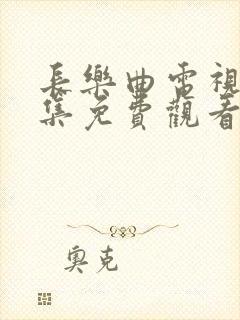 長樂曲電視
集免費觀看
奧克